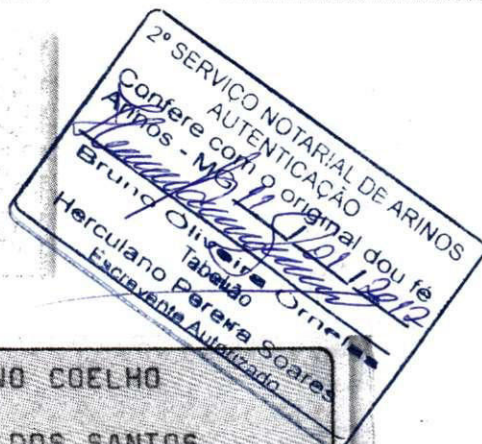 2º SERVIÇO NOTARIAL DE ARINOS
AUTENTICAÇÃO
Confere com o original dou fé
Arinos - MG 11 / 01 / 2012
Bruno Oliveira Ornelas
Tabelião
Herculano Pereira Soares
Escrevente Autorizado
NO COELHO
DOS SANTOS